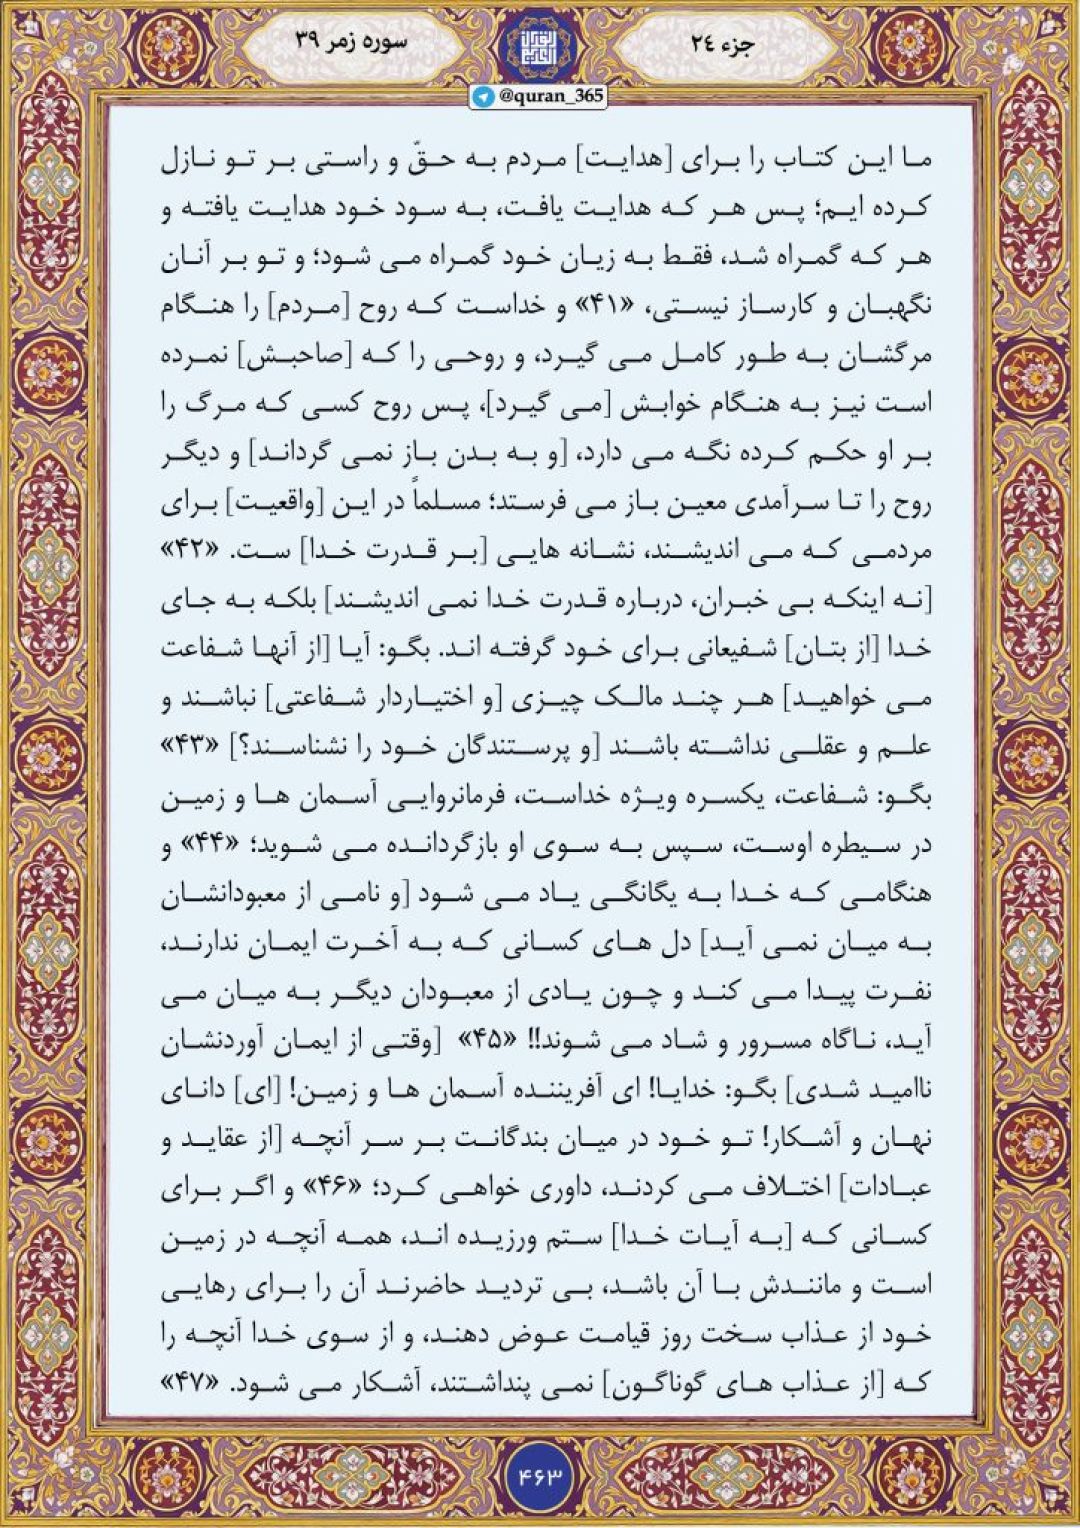 جزء ۲۴
سوره زمر ۳۹
@quran_365
ما این کتاب را برای [هدایت] مردم به حقّ و راستی بر تو نازل
کرده ایم؛ پس هر که هدایت یافت، به سود خود هدایت یافته و
هر که گمراه شد، فقط به زیان خود گمراه می شود؛ و تو بر آنان
نگهبان و کارساز نیستی، «۴۱» و خداست که روح [مردم] را هنگام
مرگشان به طور کامل می گیرد، و روحی را که [صاحبش] نمرده
است نیز به هنگام خوابش [می گیرد]، پس روح کسی که مرگ را
بر او حکم کرده نگه می دارد، [و به بدن باز نمی گرداند] و دیگر
روح را تا سرآمدی معین باز می فرستد؛ مسلماً در این [واقعیت] برای
مردمی که می اندیشند، نشانه هایی [بر قدرت خدا] ست. «۴۲»
[نه اینکه بی خبران، درباره قدرت خدا نمی اندیشند] بلکه به جای
خدا [از بتان] شفیعانی برای خود گرفته اند. بگو: آیا [از آنها شفاعت
می خواهید] هر چند مالک چیزی [و اختیاردار شفاعتی] نباشند و
علم و عقلی نداشته باشند [و پرستندگان خود را نشناسند؟] «۴۳»
بگو: شفاعت، یکسره ویژه خداست، فرمانروایی آسمان ها و زمین
در سیطره اوست، سپس به سوی او بازگردانده می شوید؛ «۴۴» و
هنگامی که خدا به یگانگی یاد می شود [و نامی از معبودانشان
به میان نمی آید] دل های کسانی که به آخرت ایمان ندارند،
نفرت پیدا می کند و چون یادی از معبودان دیگر به میان می
آید، ناگاه مسرور و شاد می شوند!! «۴۵» [وقتی از ایمان آوردنشان
ناامید شدی] بگو: خدایا! ای آفریننده آسمان ها و زمین! [ای] دانای
نهان و آشکار! تو خود در میان بندگانت بر سر آنچه [از عقاید و
عبادات] اختلاف می کردند، داوری خواهی کرد؛ «۴۶» و اگر برای
کسانی که [به آیات خدا] ستم ورزیده اند، همه آنچه در زمین
است و مانندش با آن باشد، بی تردید حاضرند آن را برای رهایی
خود از عذاب سخت روز قیامت عوض دهند، و از سوی خدا آنچه را
که [از عذاب های گوناگون] نمی پنداشتند، آشکار می شود. «۴۷»
۴۶۳